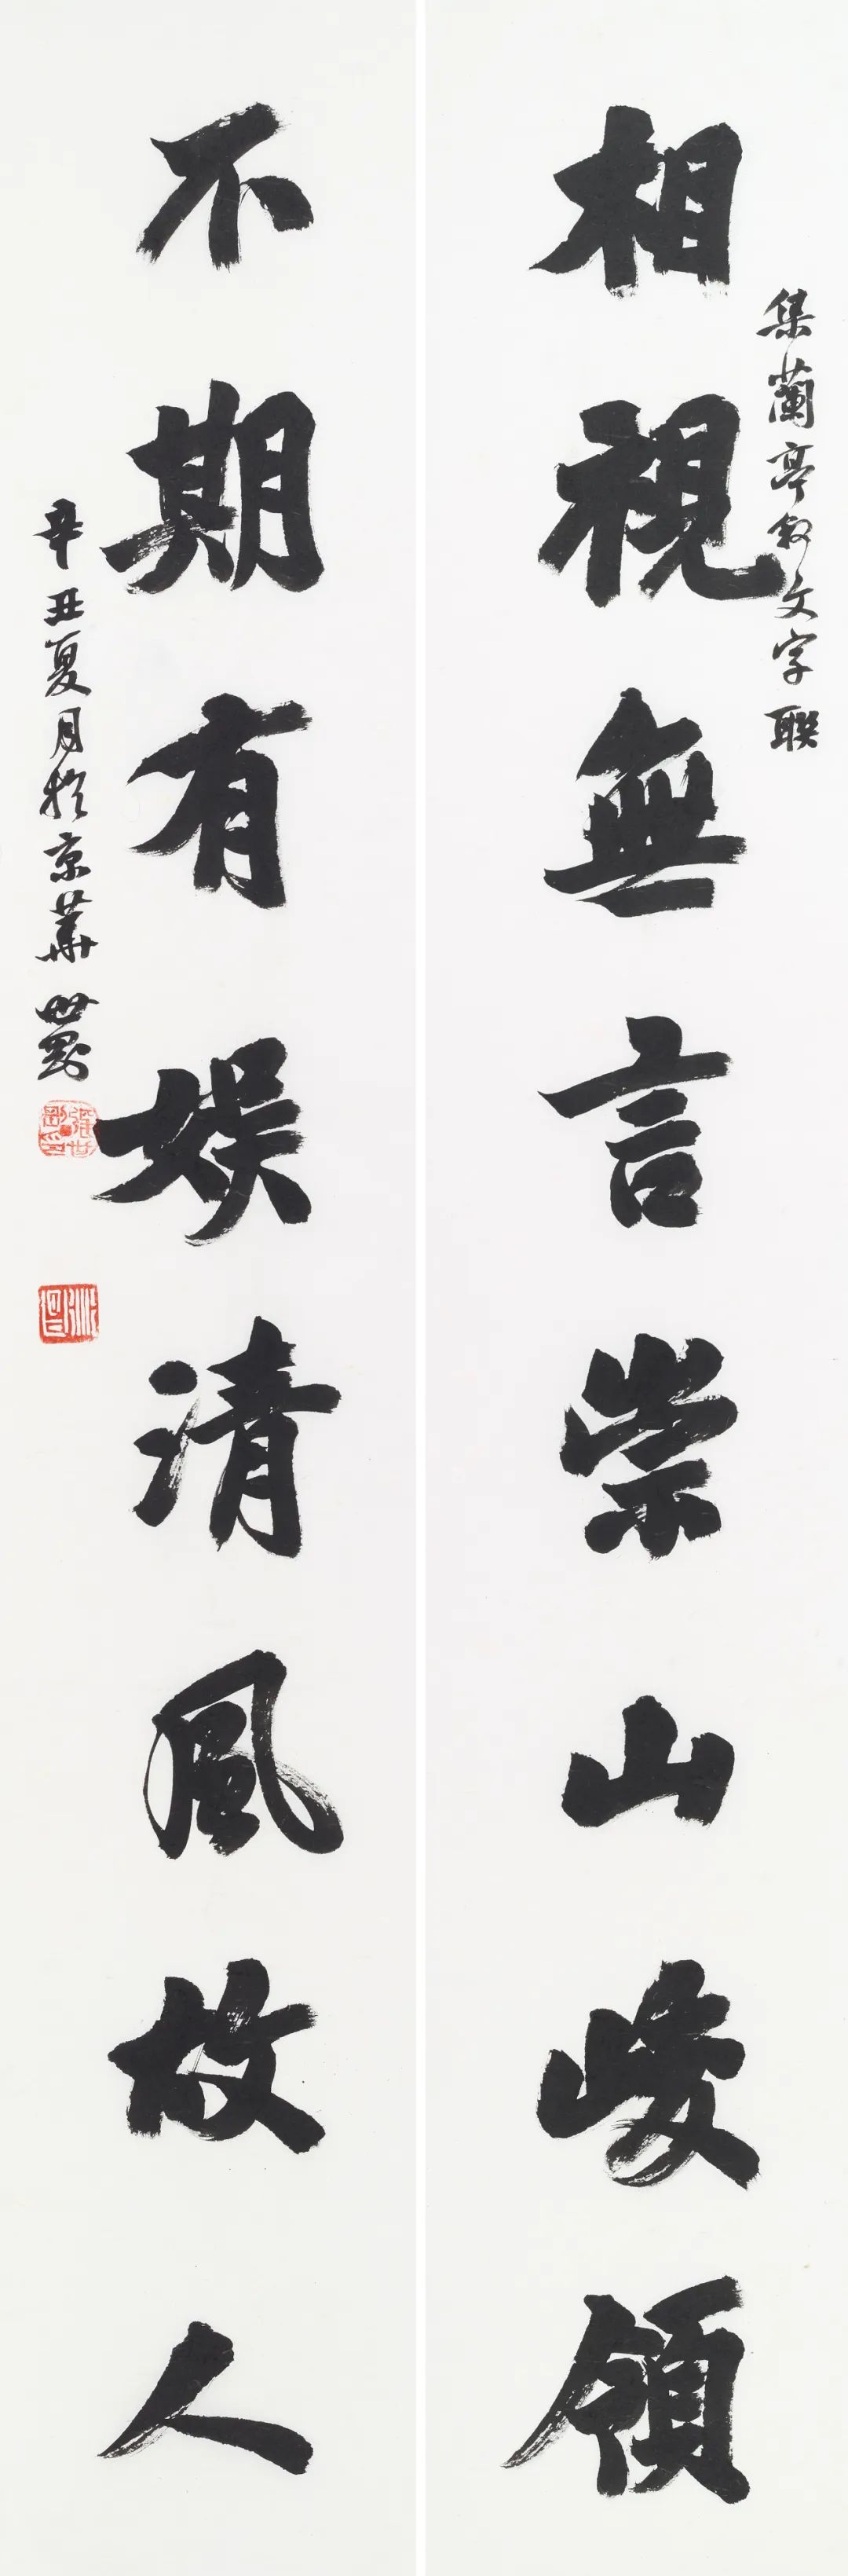 集蘭亭敘文字聯
相視無言崇山峻領
不期有娱清風故人
辛丑夏月於京華 世剛
張世剛印